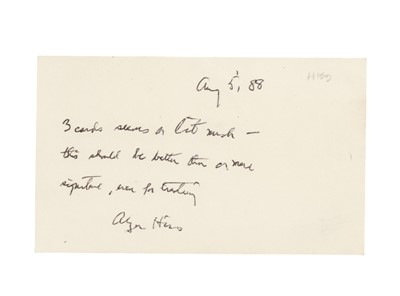 Aug 5, '88
Hiss
3 cards seems a bit much —
this should be better than a mere
signature, even for trading
Alger Hiss